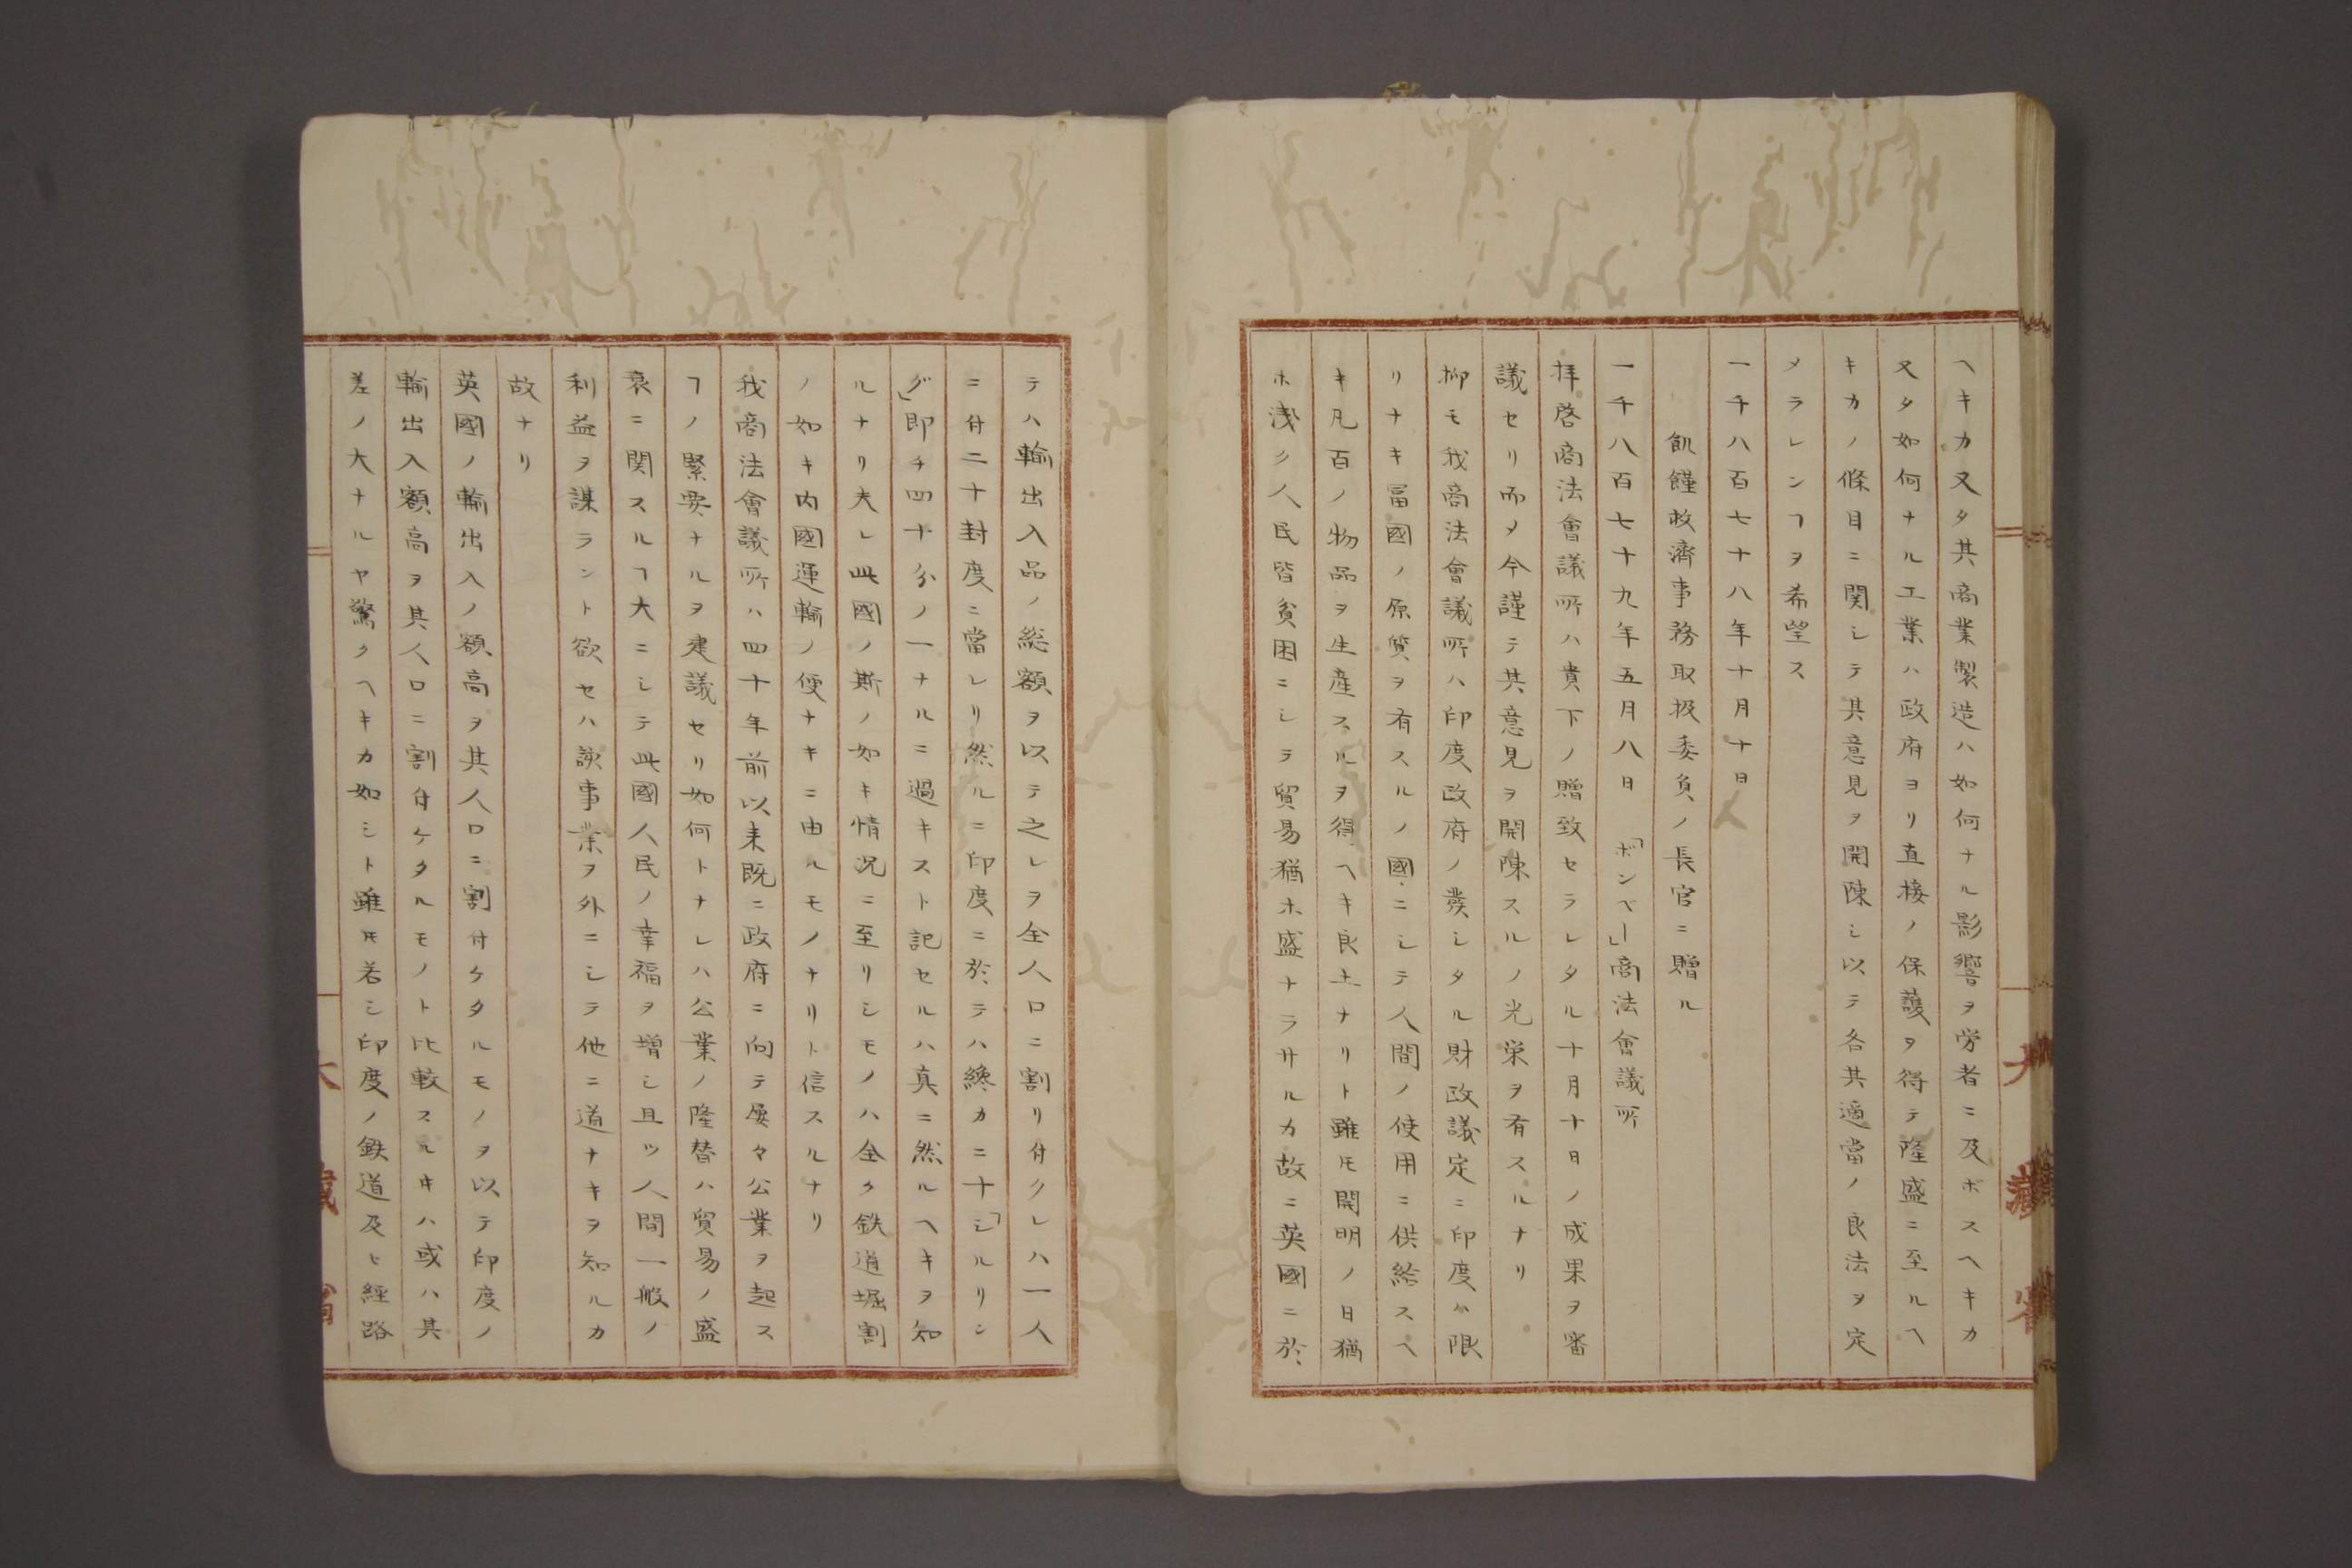 ヘキカ又タ其商業製造ハ如何ナル影響ヲ労者ニ及ボスヘキカ
又タ如何ナル工業ハ政府ヨリ直接ノ保護ヲ得テ隆盛ニ至ルヘ
キカノ條目ニ関シテ其意見ヲ開陳シ以テ各其適當ノ良法ヲ定
メラレンヿヲ希望ス
一千八百七十八年十月十日
飢饉救濟事務取扱委負ノ長官ニ贈ル
一千八百七十九年五月八日 「ボンベー」商法會議所
拝啓商法會議所ハ貴下ノ贈致セラレタル十月十日ノ成果ヲ審
議セリ而〆今謹テ其意見ヲ開陳スルノ光栄ヲ有スルナリ
抑モ我商法會議所ハ印度政府ノ發シタル財政議定ニ印度ハ限
リナキ冨國ノ原質ヲ有スルノ國ニシテ人間ノ使用ニ供給スヘ
キ凡百ノ物品ヲ生産スルヲ得ヘキ良土ナリト雖𪜈開明ノ日猶
ホ淺ク人民皆貧困ニシテ貿易猶ホ盛ナラサルカ故ニ英國ニ於
テハ輸出入品ノ総額ヲ以テ之レヲ全人口ニ割リ付クレハ一人
ニ付二十封度ニ當レリ然ルニ印度ニ於テハ纔カニ十「シルリン
グ」即チ四十分ノ一ナルニ過キスト記セルハ真ニ然ルヘキヲ知
ルナリ夫レ此國ノ斯ノ如キ情况ニ至リシモノハ全ク鉄道堀割
ノ如キ内國運輸ノ便ナキニ由ルモノナリト信スルナリ
我商法會議所ハ四十年前以来既ニ政府ニ向テ屡々公業ヲ起ス
ヿノ緊要ナルヲ建議セリ如何トナレハ公業ノ隆替ハ貿易ノ盛
衰ニ関スルヿ大ニシテ此國人民ノ幸福ヲ増シ且ツ人間一般ノ
利益ヲ謀ラント欲セハ該事業ヲ外ニシテ他ニ道ナキヲ知ルカ
故ナリ
英國ノ輸出入ノ額高ヲ其人口ニ割付ケタルモノヲ以テ印度ノ
輸出入額高ヲ其人口ニ割付ケタルモノト比較スルキハ或ハ其
差ノ大ナルヤ驚クヘキカ如シト雖𪜈若シ印度ノ鉄道及ヒ經路
大藏省